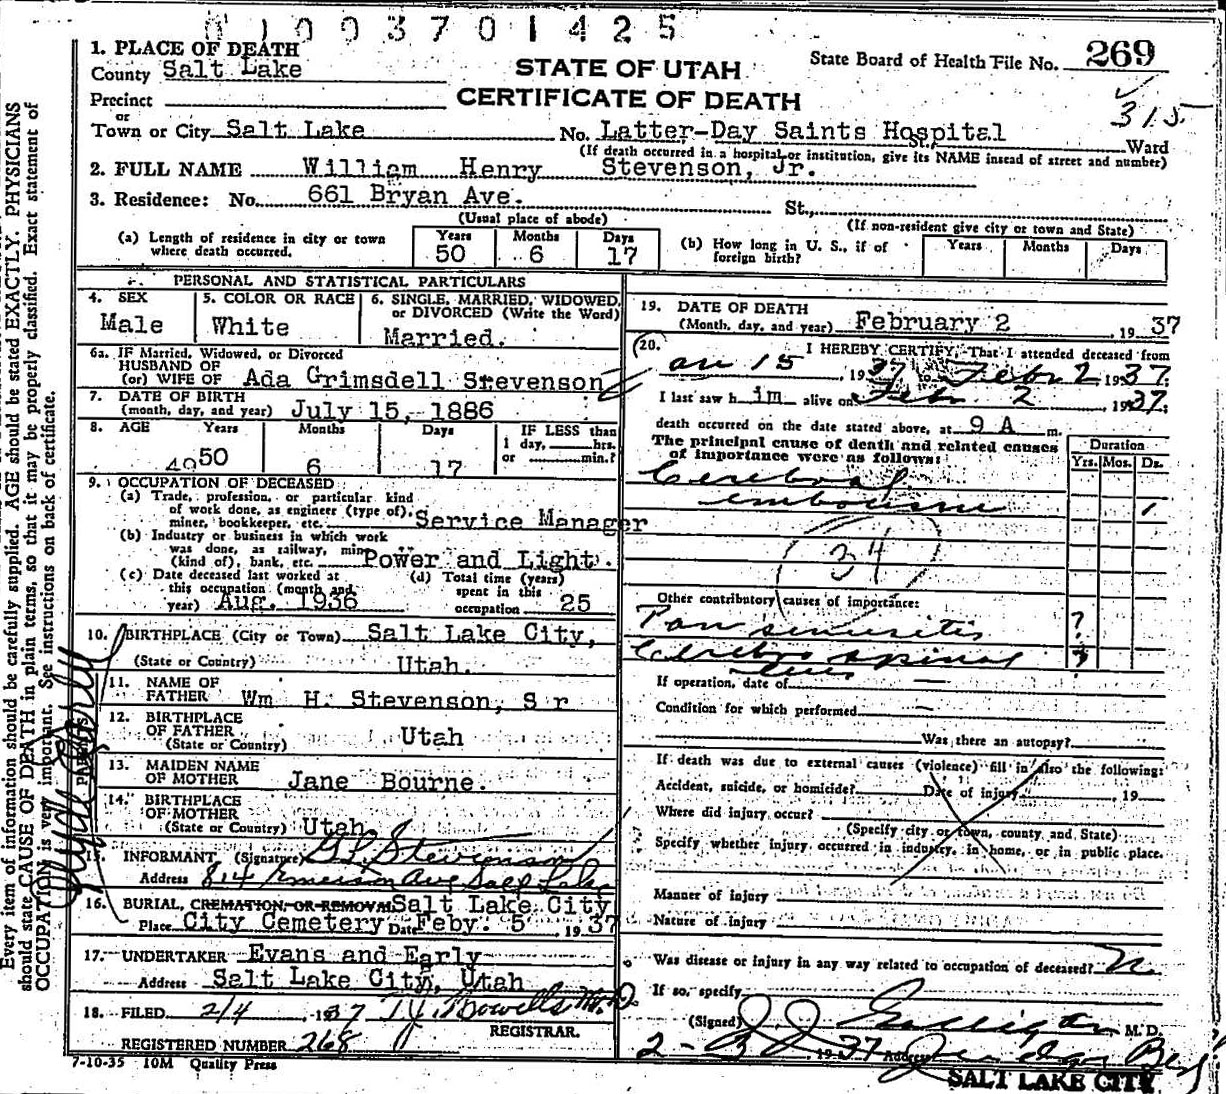 01003701425
1. PLACE OF DEATH
County Salt Lake
STATE OF UTAH
State Board of Health File No. 269
Precinct
CERTIFICATE OF DEATH
315
or
Town or City Salt Lake No. Latter-Day Saints Hospital St., Ward
(If death occurred in a hospital or institution, give its NAME insead of street and number)
2. FULL NAME William Henry Stevenson, Jr.
3. Residence: No. 661 Bryan Ave. St.,
(Usual place of abode) (If non-resident give city or town and State)
(a) Length of residence in city or town where death occurred. Years 50 Months 6 Days 17
(b) How long in U. S., if of foreign birth? Years Months Days
PERSONAL AND STATISTICAL PARTICULARS
4. SEX Male
5. COLOR OR RACE White
6. SINGLE, MARRIED, WIDOWED, or DIVORCED (Write the Word) Married.
6a. IF Married, Widowed, or Divorced
HUSBAND OF
(or) WIFE OF Ada Grimsdell Stevenson
7. DATE OF BIRTH
(month, day, and year) July 15, 1886
8. AGE Years Months Days IF LESS than
1 day, hrs.
or min.?
49 50 6 17
9. OCCUPATION OF DECEASED
(a) Trade, profession, or particular kind
of work done, as engineer (type of),
miner, bookkeeper, etc. Service Manager
(b) Industry or business in which work
was done, as railway, mine
(kind of), bank, etc. Power and Light.
(c) Date deceased last worked at
this occupation (month and
year) Aug. 1936
(d) Total time (years)
spent in this
occupation 25
10. BIRTHPLACE (City or Town) Salt Lake City,
(State or Country) Utah.
PARENTS
11. NAME OF
FATHER Wm H. Stevenson, Sr
12. BIRTHPLACE
OF FATHER
(State or Country) Utah
13. MAIDEN NAME
OF MOTHER Jane Bourne.
14. BIRTHPLACE
OF MOTHER
(State or Country) Utah
15. INFORMANT (Signature) Stevenson
Address 814 Emerson Ave Salt Lake
16. BURIAL, CREMATION, OR REMOVAL Salt Lake City
Place City Cemetery Date Feby. 5 1937
17. UNDERTAKER Evans and Early
Address Salt Lake City, Utah
18. FILED 2/4 1937 T.J. Howells M.D.
REGISTRAR.
REGISTERED NUMBER 268
7-10-35 10M Quality Press
19. DATE OF DEATH
(Month, day, and year) February 2 , 1937
20. I HEREBY CERTIFY, That I attended deceased from
Jan 15 , 1937 to Febr 2 1937
I last saw h im alive on Febr. 2 1937,
death occurred on the date stated above, at 9 A m.
The principal cause of death and related causes
of importance were as follows:
Duration
Yrs. Mos. Ds.
Cerebral
embolism 1
34
Other contributory causes of importance:
Pan sinusitis ?
Cerebro spinal ?
If operation, date of —
Condition for which performed —
Was there an autopsy?
If death was due to external causes (violence) fill in also the following:
Accident, suicide, or homicide? Date of injury , 19
Where did injury occur?
(Specify city or town, county and State)
Specify whether injury occurred in industry, in home, or in public place.
Manner of injury
Nature of injury
Was disease or injury in any way related to occupation of deceased?
If so, specify
(Signed) M. D.
2-3 1937 Address
SALT LAKE CITY
Every item of information should be carefully supplied. AGE should be stated EXACTLY. PHYSICIANS
should state CAUSE OF DEATH in plain terms, so that it may be properly classified. Exact statement of
OCCUPATION is very important. See instructions on back of certificate.